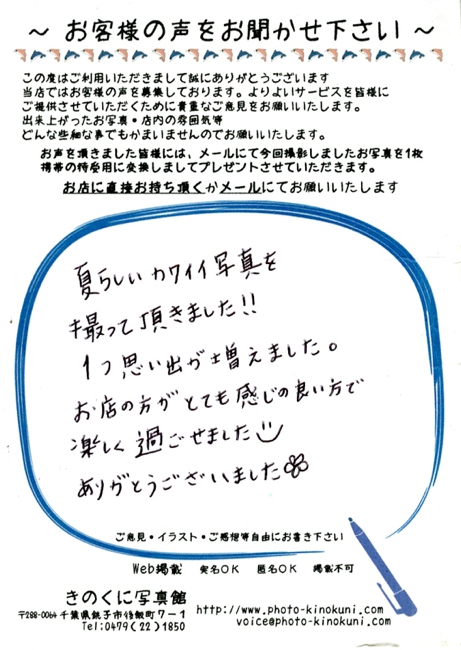 ～ お客様の声をお聞かせ下さい ～
この度はご利用いただきまして誠にありがとうございます
当店ではお客様の声を募集しております。よりよいサービスを皆様に
ご提供させていただくために貴重なご意見をお願いいたします。
出来上がったお写真・店内の雰囲気等
どんな些細な事でもかまいませんのでお願いいたします。
お声を頂きました皆様には、メールにて今回撮影しましたお写真を1枚
携帯の待受用に変換しましてプレゼントさせていただきます。
お店に直接お持ち頂くかメールにてお願いいたします
夏らしいカワイイ写真を
撮って頂きました!!
1つ思い出が増えました。
お店の方がとても感じの良い方で
楽しく過ごせました
ありがとうございました
ご意見・イラスト・ご感想等自由にお書き下さい
Web掲載 実名OK 匿名OK 掲載不可
きのくに写真館
〒288-0064 千葉県銚子市後飯町7-1
Tel:0479(22)1850
http://www.photo-kinokuni.com/
voice@photo-kinokuni.com